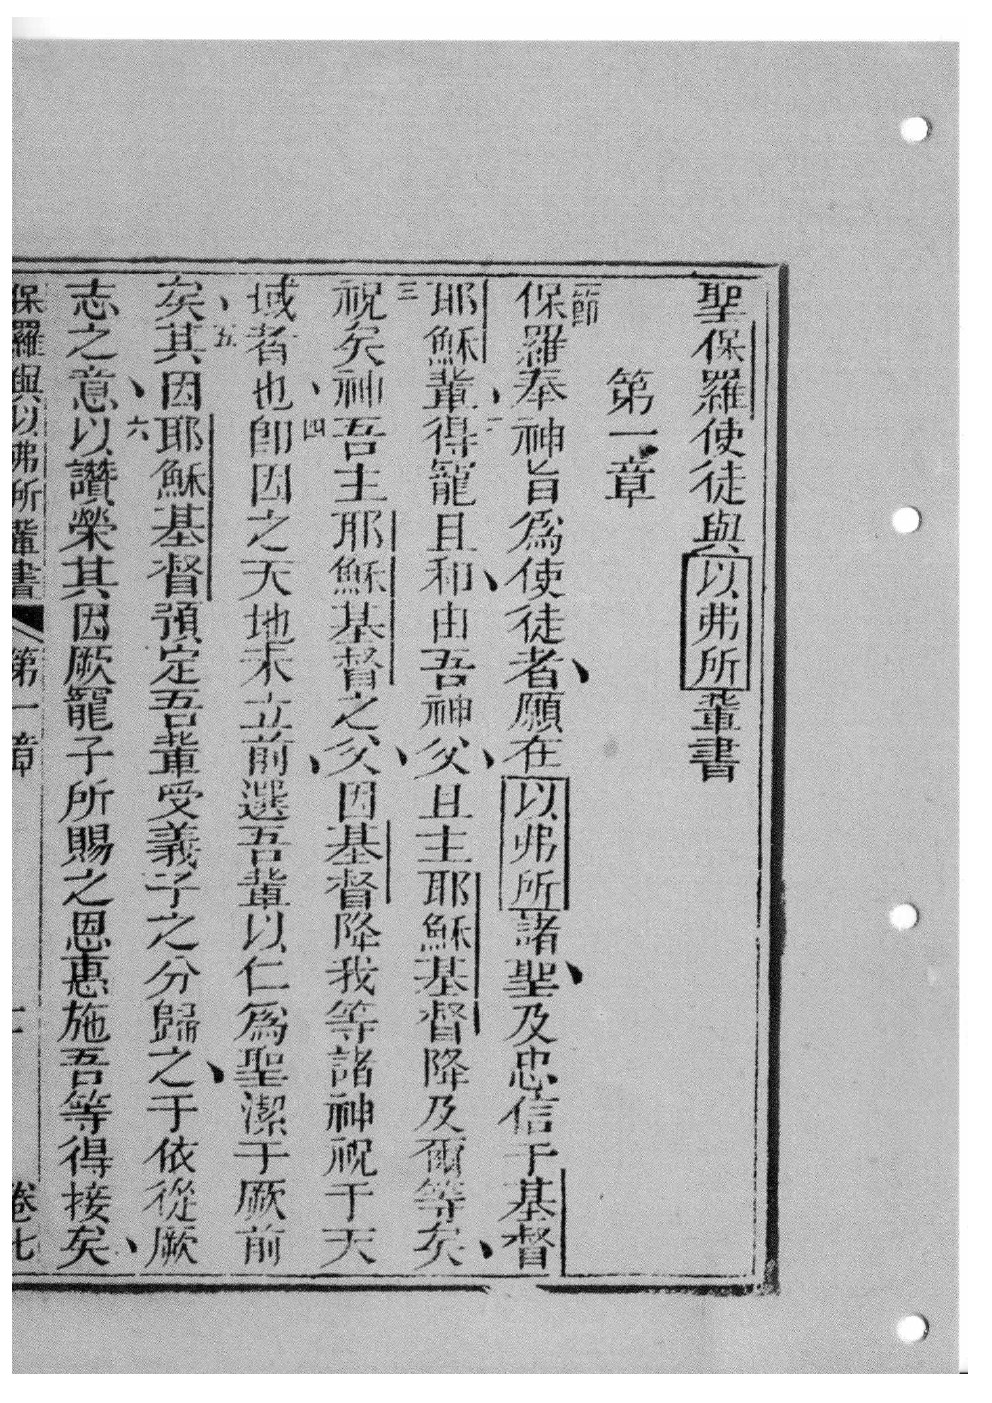 聖保羅使徒與以弗所輩書
第一章
一節保羅奉神旨為使徒者、願在以弗所諸聖、及忠信于基督
耶穌輩、二得寵且和、由吾神父、且主耶穌基督降及爾等矣、
三祝矣神吾主耶穌基督之父、因基督降我等諸神祝于天
域者也、四卽因之天地未立前、選吾輩以仁為聖潔于厥前
矣、五其因耶穌基督預定吾輩受義子之分歸之、于依從厥
志之意、六以讚榮其因厥寵子所賜之恩惠施吾等得接矣、
保羅與以弗所輩書 第一章 一 卷七